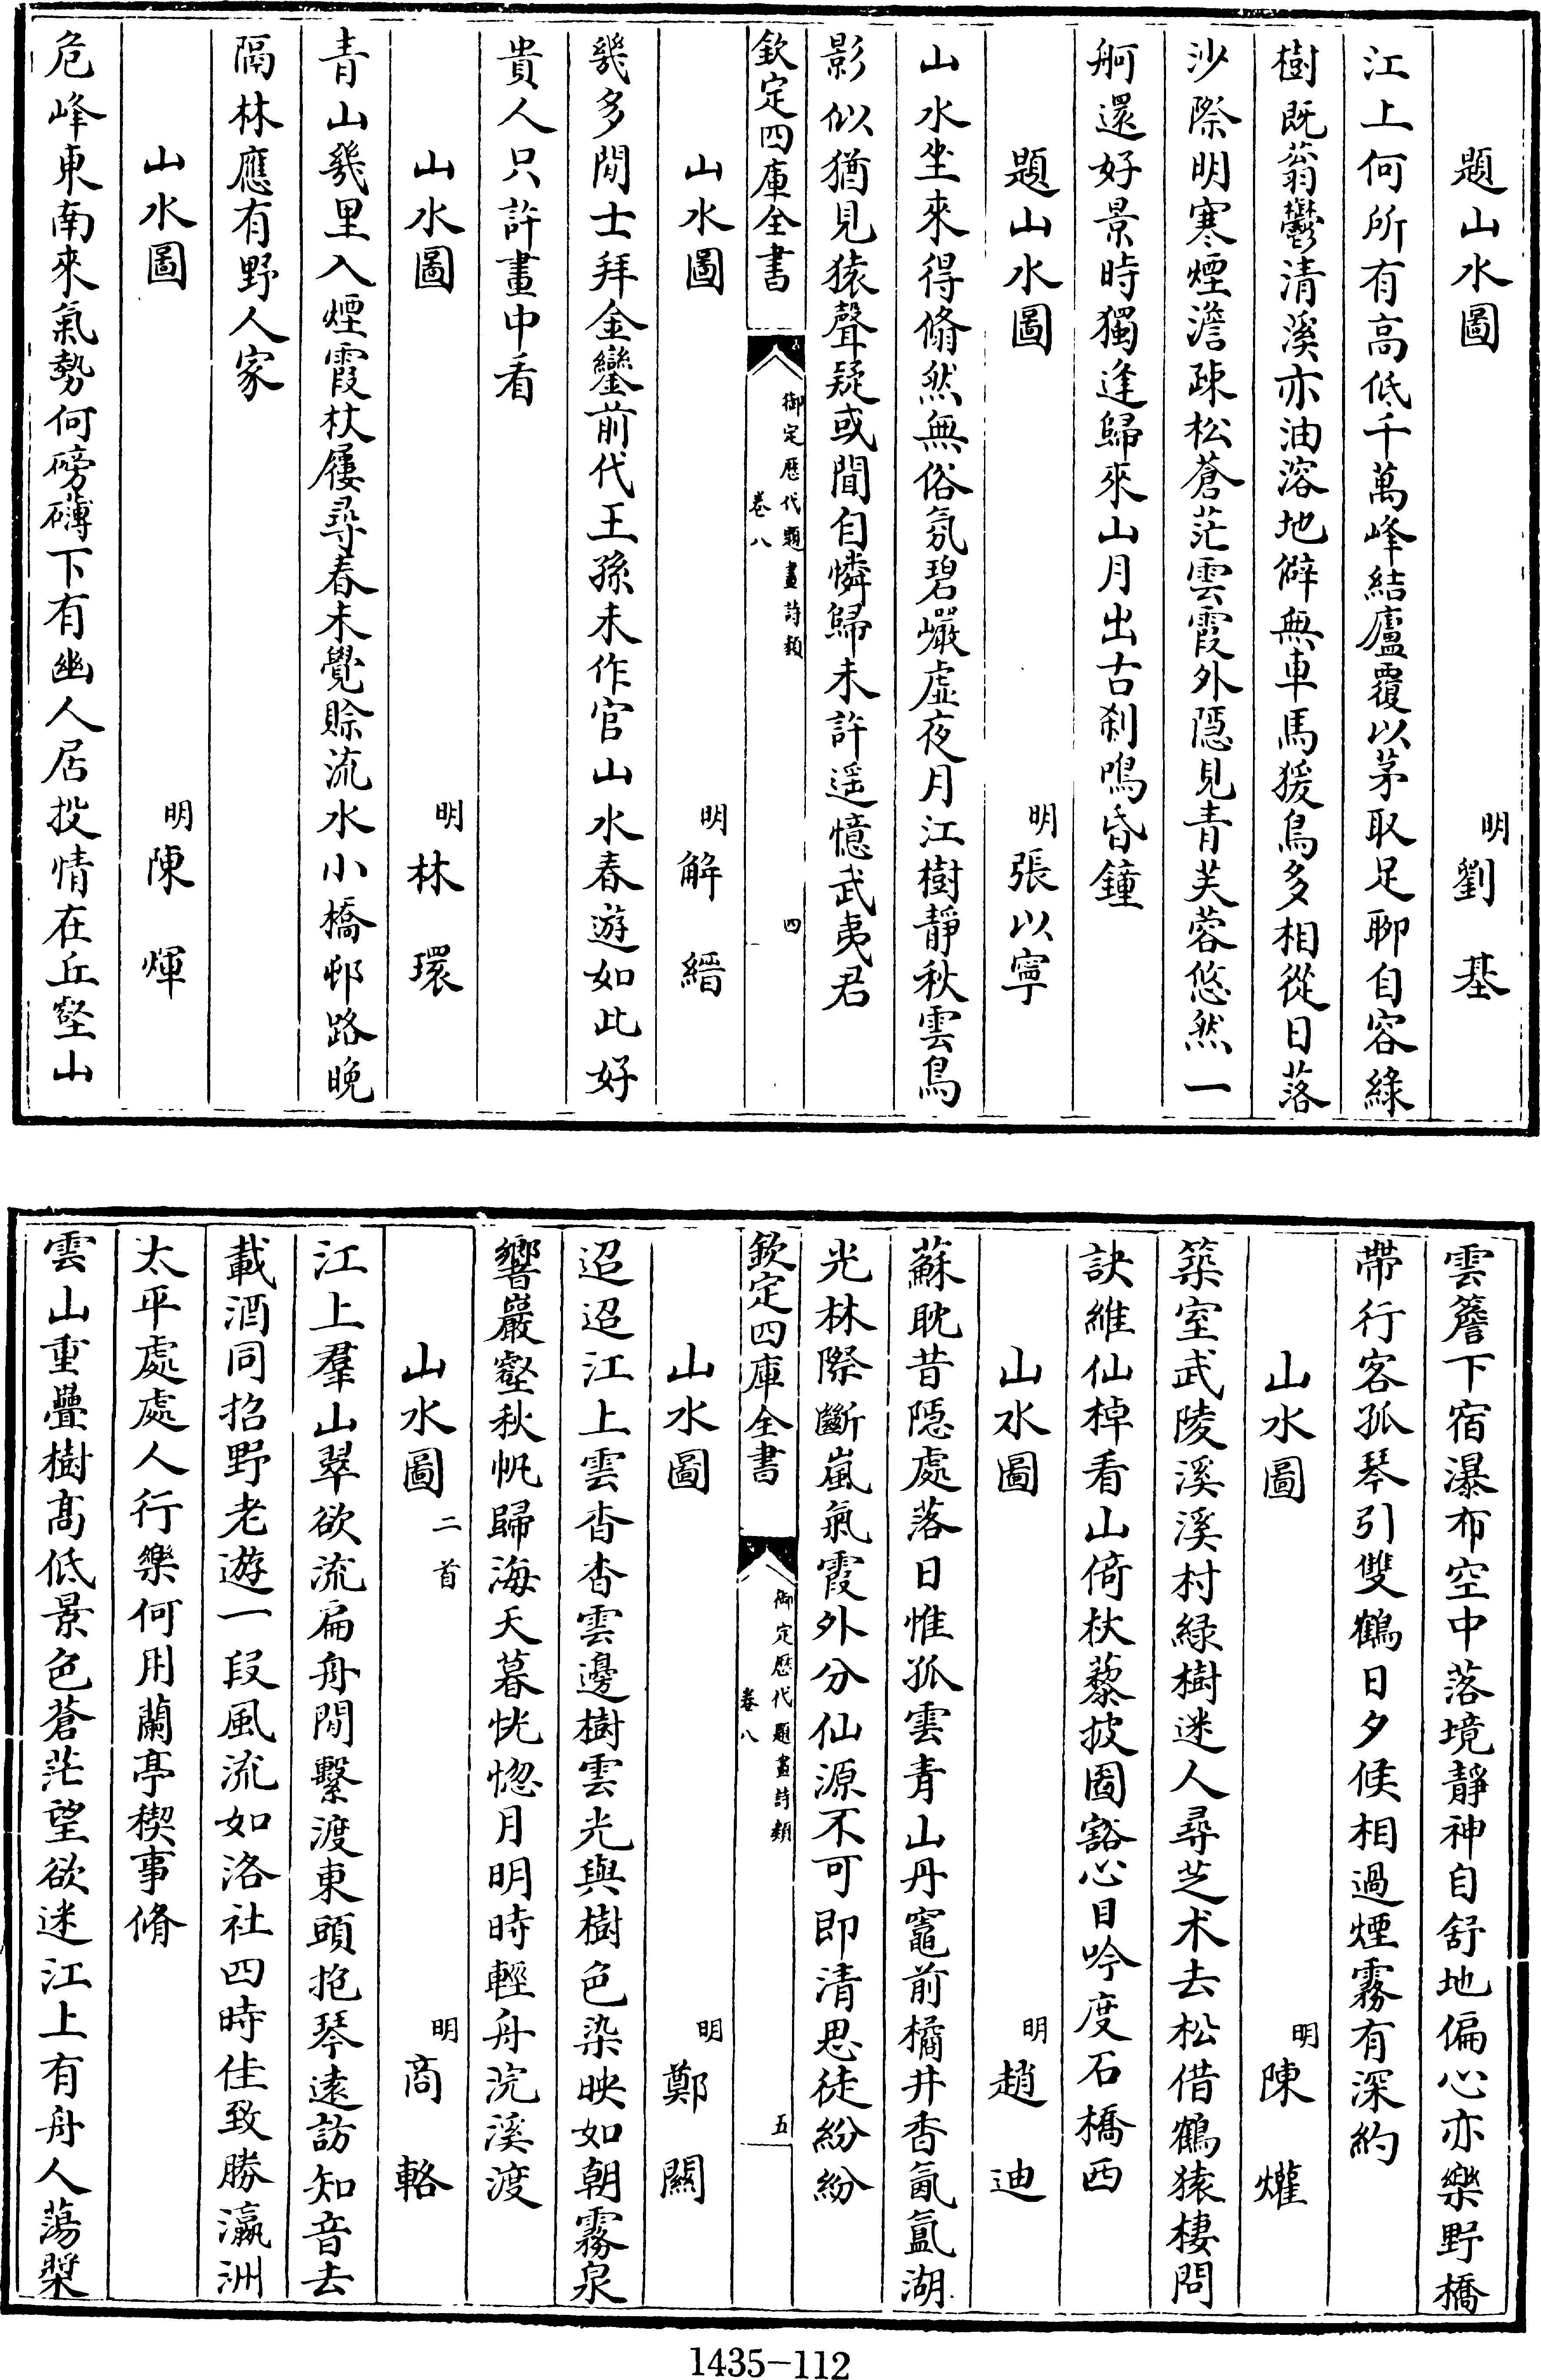 題山水圖　明劉基
江上何所有高低千萬峰結廬覆以茅取足聊自容綠
樹既蓊鬱清溪亦油溶地僻無車馬猨鳥多相從日落
沙際明寒煙澹疎松蒼茫雲霞外隱見青芙蓉悠然一
舸還好景時獨逢歸來山月出古刹鳴昏鐘
題山水圖　明張以寧
山水坐來得翛然無俗氛碧巗虛夜月江樹靜秋雲鳥
影似猶見猿聲疑或聞自憐歸未許遥憶武夷君
欽定四庫全書　御定歷代題畫詩類卷八　四
山水圖　明解縉
幾多閒士拜金鑾前代王孫未作官山水春遊如此好
貴人只許畫中看
山水圖　明林環
青山幾里入煙霞杖屨尋春未覺賒流水小橋邨路晚
隔林應有野人家
山水圖　明陳煇
危峰東南來氣勢何磅礴下有幽人居投情在丘壑山
雲簷下宿瀑布空中落境靜神自舒地偏心亦樂野橋
帶行客孤琴引雙鶴日夕候相過煙霧有深約
山水圖　明陳爟
築室武陵溪溪村綠樹迷人尋芝术去松借鶴猿棲問
訣維仙棹看山倚杖藜披圖豁心目吟度石橋西
山水圖　明趙迪
蘇耽昔隱處落日惟孤雲青山丹竈前橘井香氤氳湖
光林際斷嵐氣霞外分仙源不可即清思徒紛紛
欽定四庫全書　御定歷代題畫詩類卷八　五
山水圖　明鄭關
迢迢江上雲杳杳雲邊樹雲光與樹色染映如朝霧泉
響巖壑秋帆歸海天暮恍惚月明時輕舟浣溪渡
山水圖二首　明商輅
江上羣山翠欲流扁舟閒繫渡東頭抱琴遠訪知音去
載酒同招野老遊一段風流如洛社四時佳致勝瀛洲
太平處處人行樂何用蘭亭禊事脩
雲山重疊樹髙低景色蒼茫望欲迷江上有舟人蕩槳
1435-112